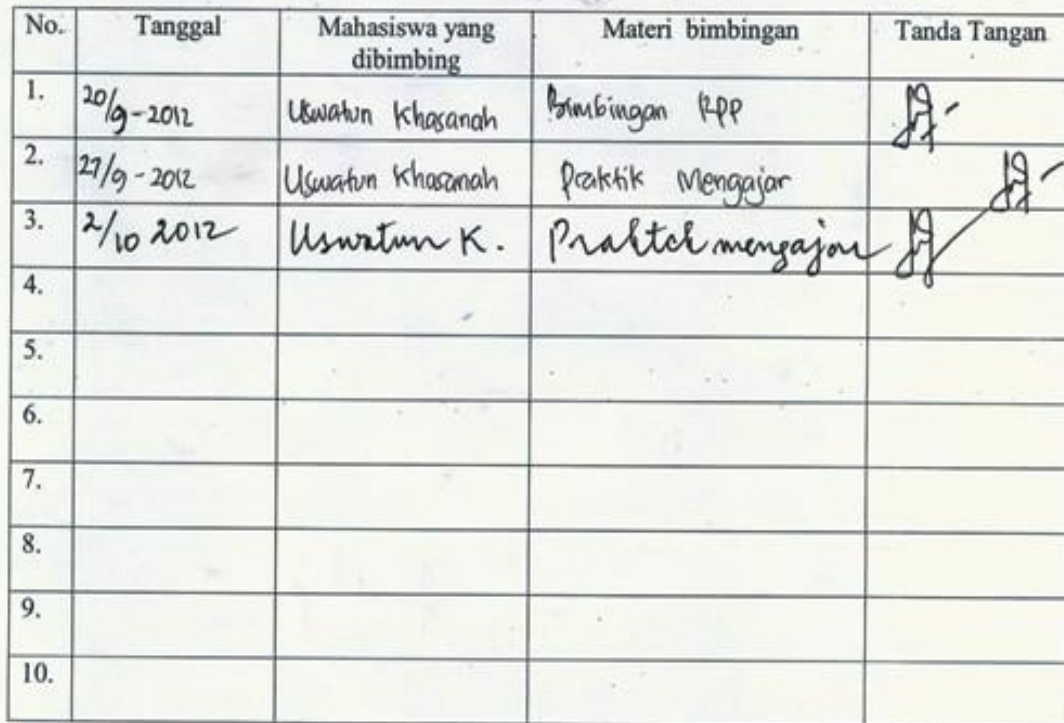 No. Tanggal Mahasiswa yang dibimbing Materi bimbingan Tanda Tangan
1. 20/9-2012 Uswatun Khasanah Bimbingan RPP
2. 27/9-2012 Uswatun Khasanah Praktik Mengajar
3. 2/10 2012 Uswatun K. Praktek mengajar
4.
5.
6.
7.
8.
9.
10.